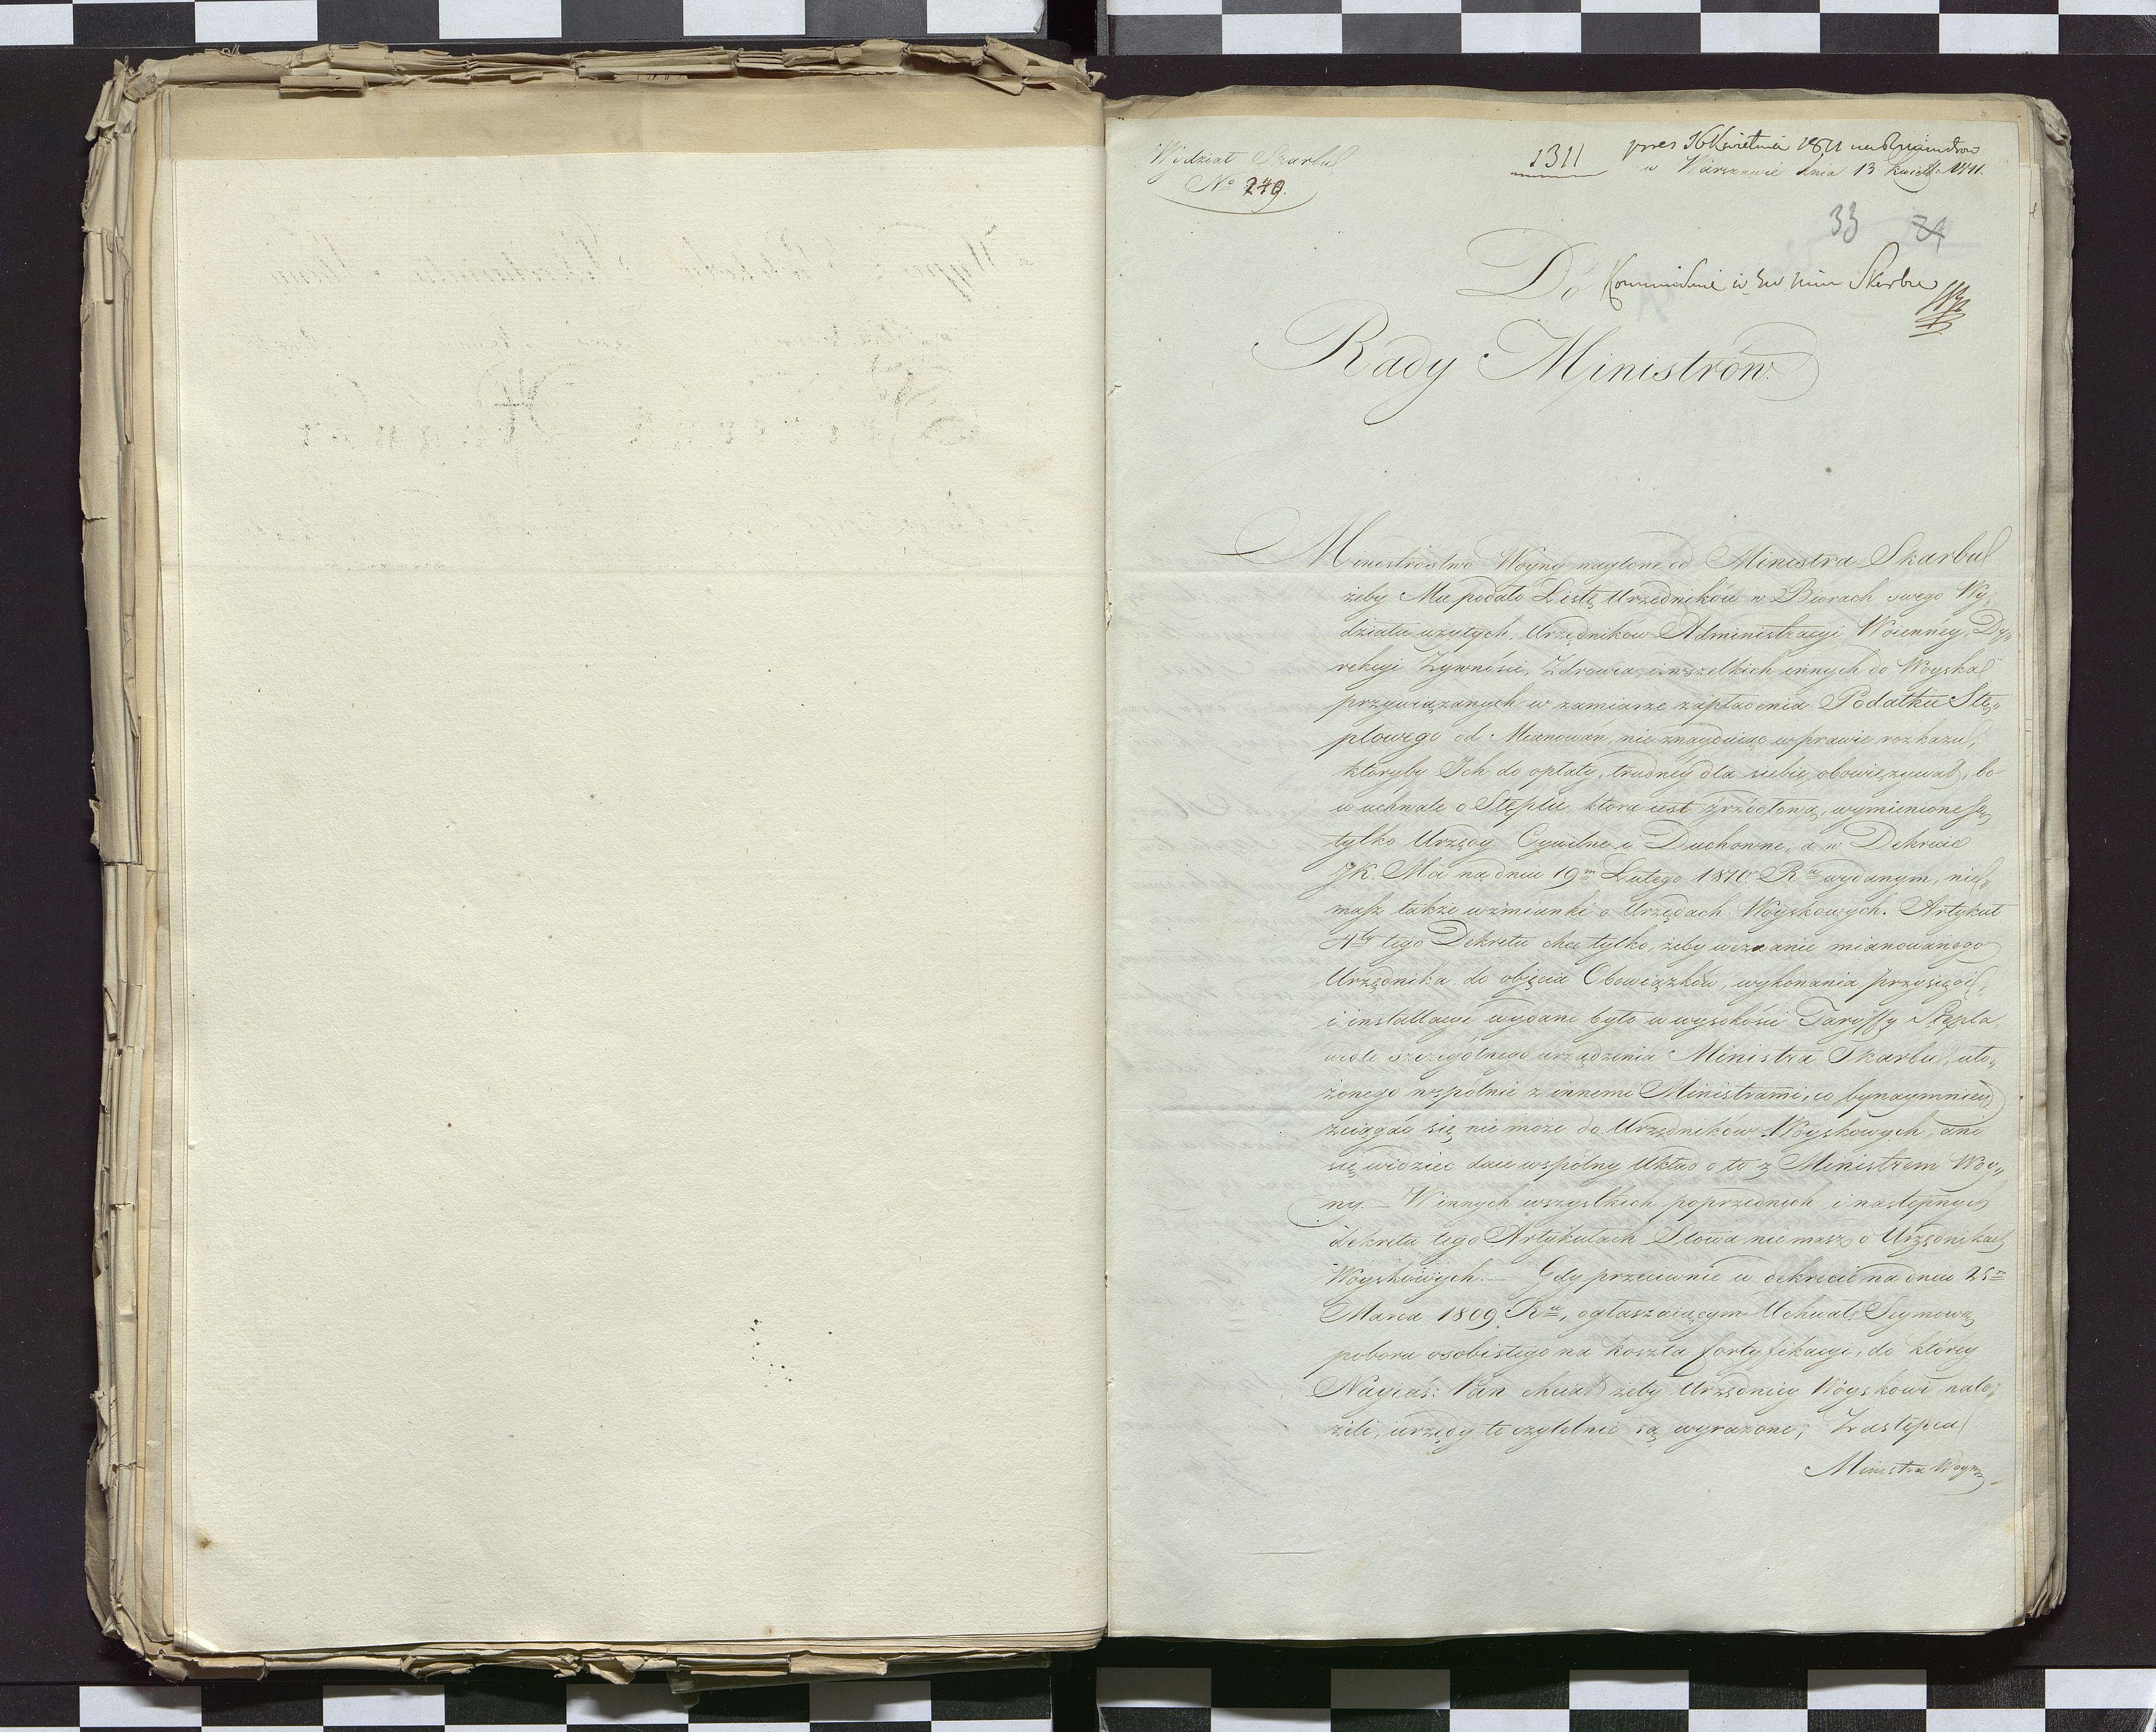 Wydział Skarbu
No 249.
1311
pres 16 Kwietnia 1811
w Warszawie dnia 13 Kwiet: 1811.
33 21
Do
Rady Ministrów.
Ministerstwo Woyny naglone od Ministra Skarbu
żeby Mu podało Listę Urzędników w Biorach swego Wy„
działu użytych, Urzędników Administracyi Woienney, Dy„
rekcyi Żywności, Zdrowia, i wszelkich innych do Woyska
przywiązanych w zamiarze zapłacenia Podatku Stę„
plowego od Mianowań, nie znayduiąc w prawie rozkazu,
któryby Ich do opłaty, trudney dla siebie, obowięzywał, bo
w uchwale o Stęplu, która iest źrzódłową, wymienione są
tylko Urzędy Cywilne i Duchowne; a w Dekrecie
JK. Mci na dniu 19m Lutego 1810 Ru wydanym, nie„
masz także wzmianki o Urzędach Woyskowych. Artykuł
4ty tego Dekretu chce tylko, żeby wezwanie mianowanego
Urzędnika do objęcia Obowiązków, wykonania przysięgi,
i installacyi wydane było w wysokości Taryffy Stępla,
wedle szczególnego urządzenia Ministra Skarbu, uło„
żonego wspólnie z innemi Ministrami, co bynaymniey
zciągać się nie może do Urzędników Woyskowych, ani
się widzieć daie wspólny Układ o to z Ministrem Woy„
ny. — W innych wszystkich poprzednich i następnych
dekretu tego Artykułach Słowa nie masz o Urzędnikach
Woyskowych. — Gdy przeciwnie w dekrecie na dniu 25m
Marca 1809 Ru, ogłaszaiącym Uchwałę Seymową
poboru osobistego na koszta fortyfikacyi, do którey
Nayiaś: Pan chciał żeby Urzędnicy Woyskowi nale„
żeli, urzędy te czytelnie są wyrażone; Zastępca
Ministra Woyny